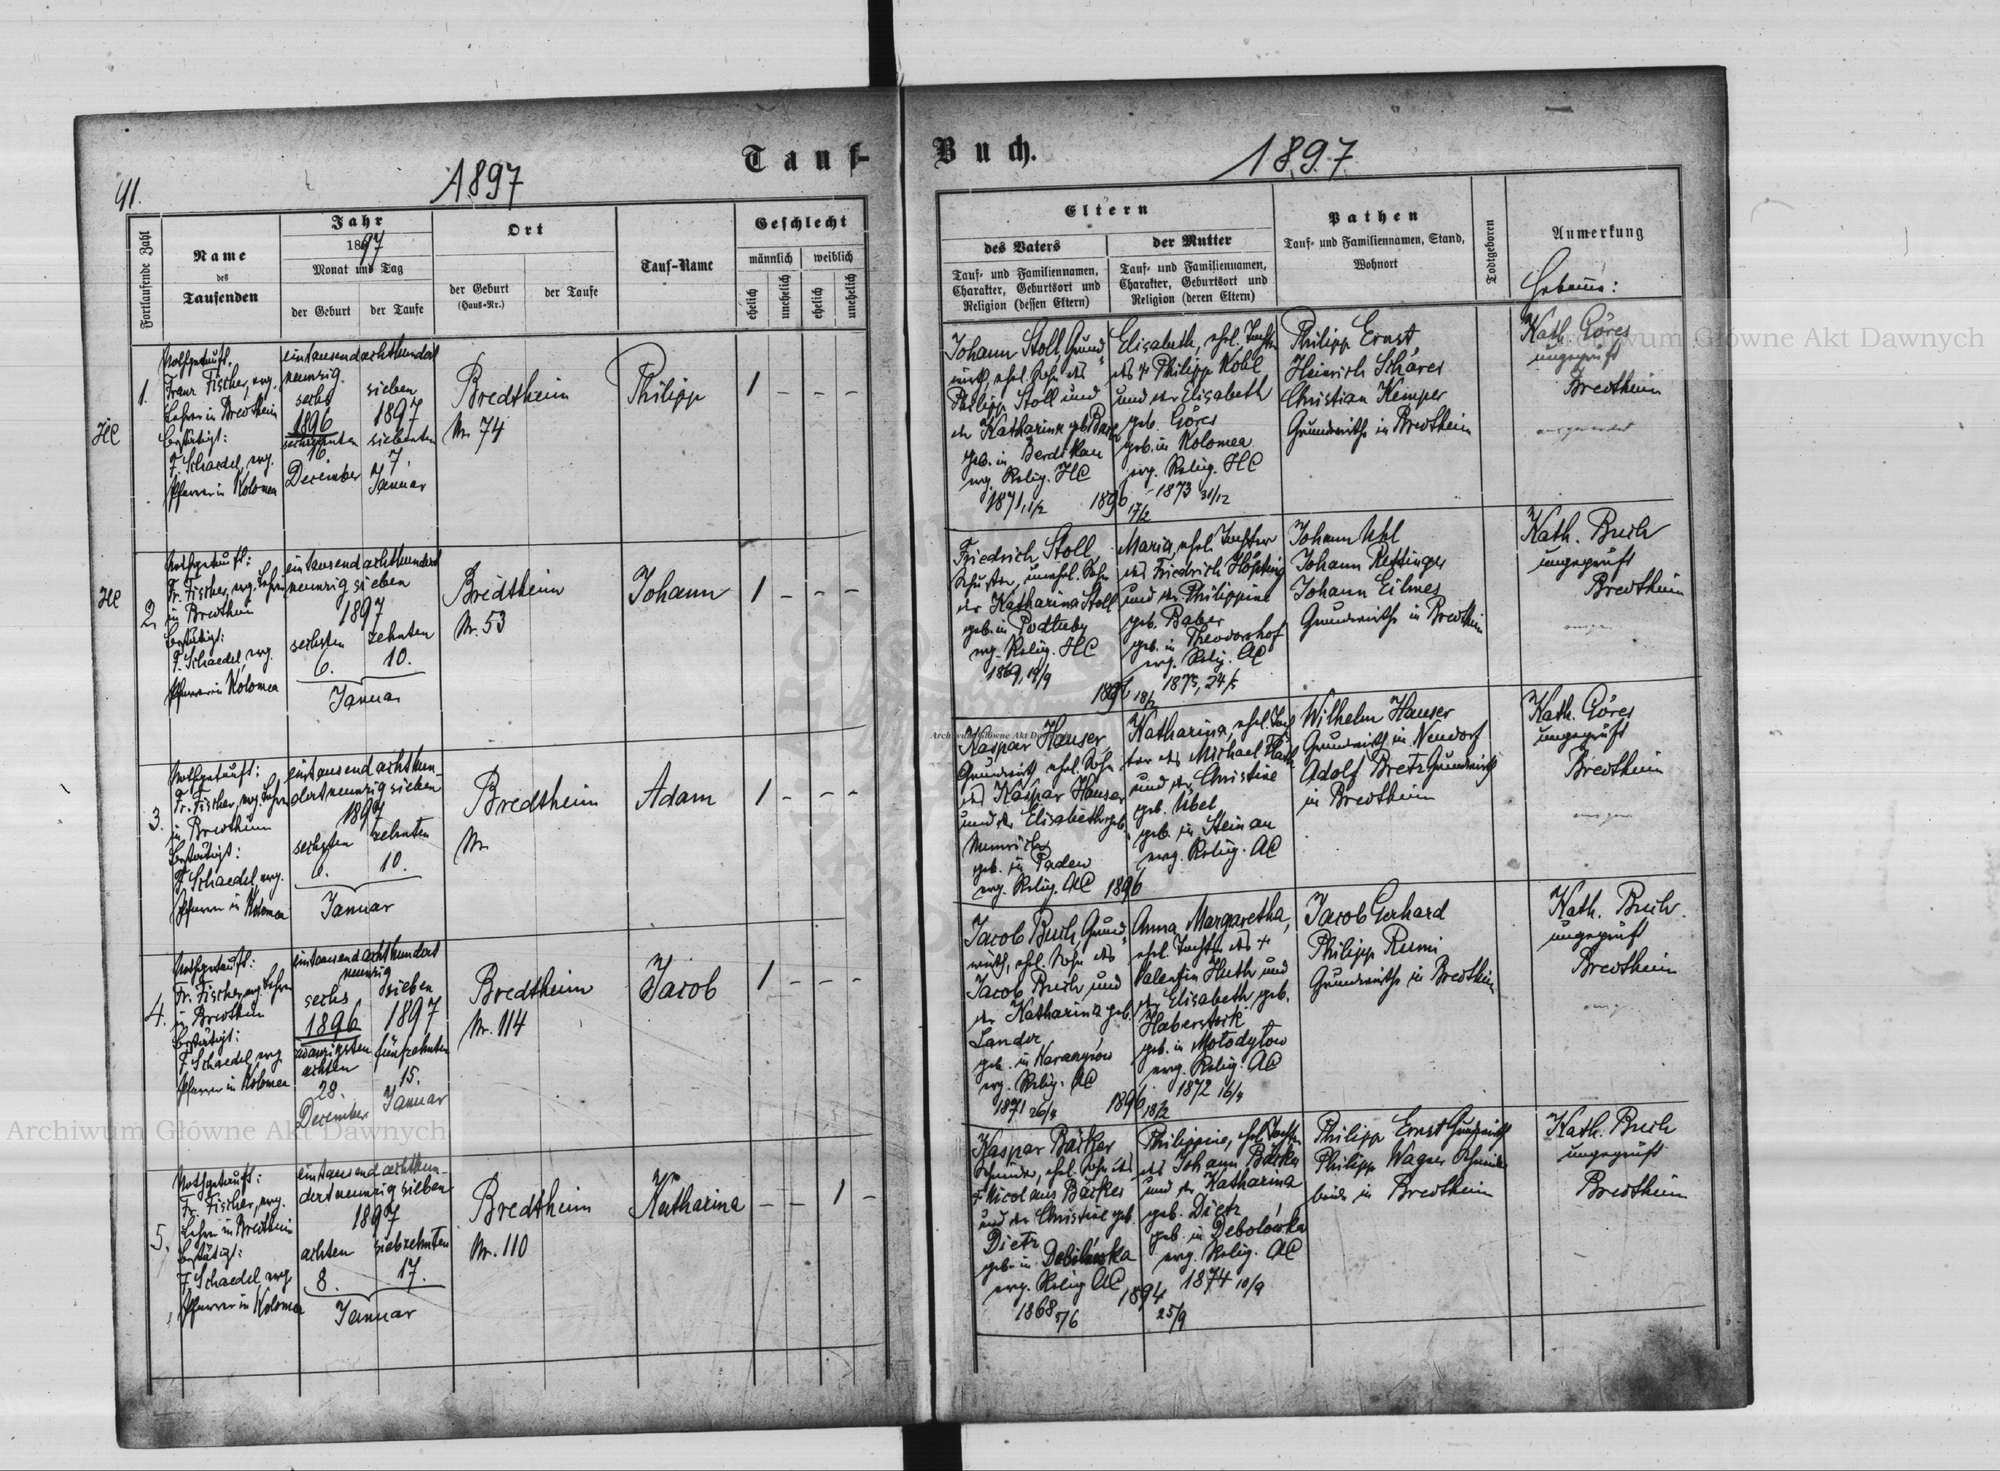 41.
1897
Tauf-
Fortlaufende Zahl
Name
des
Taufenden
Jahr
1897
Monat und Tag
der Geburt
der Taufe
Ort
der Geburt
(Haus-Nr.)
der Taufe
Tauf-Name
Geschlecht
männlich
weiblich
ehelich
unehelich
ehelich
unehelich
HC
1.
Nothgetauft.
Franz Fischer, evg.
Lehrer in Bredtheim
bestätigt:
F. Schaedel, evg.
Pfarrer in Kolomea
eintausendachthundert
neunzig
sechs
sieben
1896
1897
sechzehnten
siebenten
16.
7.
December
Januar
Bredtheim
Nr. 74
Philipp
1 - - -
HC
2.
Nothgetauft:
Fr. Fischer, evg. Lehrer
in Bredtheim
bestätigt:
F. Schaedel, evg.
Pfarrer in Kolomea
eintausendachthundert
neunzig sieben
1897
sechsten
zehnten
6.
10.
Januar
Bredtheim
Nr. 53
Johann
1 - - -
3.
Nothgetauft:
Fr. Fischer, evg. Lehrer
in Bredtheim
bestätigt:
F. Schaedel, evg.
Pfarrer in Kolomea
eintausend achthun-
dertneunzig sieben
1897
sechsten
zehnten
6.
10.
Januar
Bredtheim
Nr.
Adam
1 - - -
4.
Nothgetauft:
Fr. Fischer, evg. Lehrer
in Bredtheim
bestätigt:
F. Schaedel, evg.
Pfarrer in Kolomea
eintausend achthundert
neunzig
sechs
sieben
1896
1897
zwanzigsten
fünfzehnten
achten
15.
28.
December
Januar
Bredtheim
Nr. 114
Jacob
1 - - -
5.
Nothgetauft:
Fr. Fischer, evg.
Lehrer in Bredtheim
bestätigt:
F. Schaedel, evg.
Pfarrer in Kolomea
eintausend achthun-
dertneunzig sieben
1897
achten
siebzehnten
8.
17.
Januar
Bredtheim
Nr. 110
Katharina
- - 1 -
Buch.
1897
Eltern
des Vaters
Tauf- und Familiennamen,
Charakter, Geburtsort und
Religion (dessen Eltern)
der Mutter
Tauf- und Familiennamen,
Charakter, Geburtsort und
Religion (deren Eltern)
Pathen
Tauf- und Familiennamen, Stand,
Wohnort
Todtgeboren
Anmerkung
Hebamme:
Johann Stoll, Grund-
wirth, ehel. Sohn des
Philipp Stoll und
der Katharina geb.
geb. in
evg. Relig. HC
1871, 1/2
1896
17/2
Elisabeth, ehel. Tochter
des + Philipp Kobl
und der Elisabeth
geb. Göres
geb. in Kolomea
evg. Relig. HC
1873 31/12
Philipp Ernst,
Heinrich Schärer
Christian Kemper
Grundwirthe in Bredtheim
Kath. Göres
ungeprüft
Bredtheim
Friedrich Stoll,
Schuster, unehel. Sohn
der Katharina Stoll
geb. in
evg. Relig. HC
1869, 14/9
1896 18/2
Maria, ehel. Tochter
des Friedrich Höpting
und der Philippine
geb. Baber
geb. in Theodorshof
evg. Relig. AC
1875, 24/5
Johann Uhl
Johann Rettinger
Johann Eilmes
Grundwirthe in Bredtheim
Kath. Buch
ungeprüft
Bredtheim
Kaspar Hauser,
Grundwirth, ehel. Sohn
des Kaspar Hauser
und der Elisabeth geb.
geb. in
evg. Relig. AC
1896
Katharina, ehel. Toch-
ter des Michael
und der Christine
geb. Übel
geb. in Steinau
evg. Relig. AC
Wilhelm Hauser
Grundwirth in Neudorf
Adolf Bretz Grundwirth
in Bredtheim
Kath. Göres
ungeprüft
Bredtheim
Jacob Buch, Grund-
wirth, ehel. Sohn des
Jacob Buch und
der Katharina geb.
Lander
geb. in
evg. Relig. AC
1871 26/4
1896 18/2
Anna Margaretha,
ehel. Tochter des +
Valentin Huth und
der Elisabeth geb.
Haberstock
geb. in Mołodyłow
evg. Relig. AC
1872 16/4
Jacob Gerhard
Philipp Rumi
Grundwirthe in Bredtheim
Kath. Buch
ungeprüft
Bredtheim
Kaspar Bäcker
Schmied, ehel. Sohn des
+ Nicolaus Bäcker
und der Christine geb.
Dietz
geb. in Debolówka
evg. Relig. AC
1868 5/6
1894
25/9
Philippine, ehel. Tochter
des Johann Bäcker
und der Katharina
geb. Dietz
geb. in Debolówka
evg. Relig. AC
1874 10/9
Philipp Ernst Grundwirth
Philipp Wagner Schmied
beide in Bredtheim
Kath. Buch
ungeprüft
Bredtheim
Archiwum Główne Akt Dawnych
Archiwum Główne Akt Dawnych
Archiwum Główne Akt Dawnych